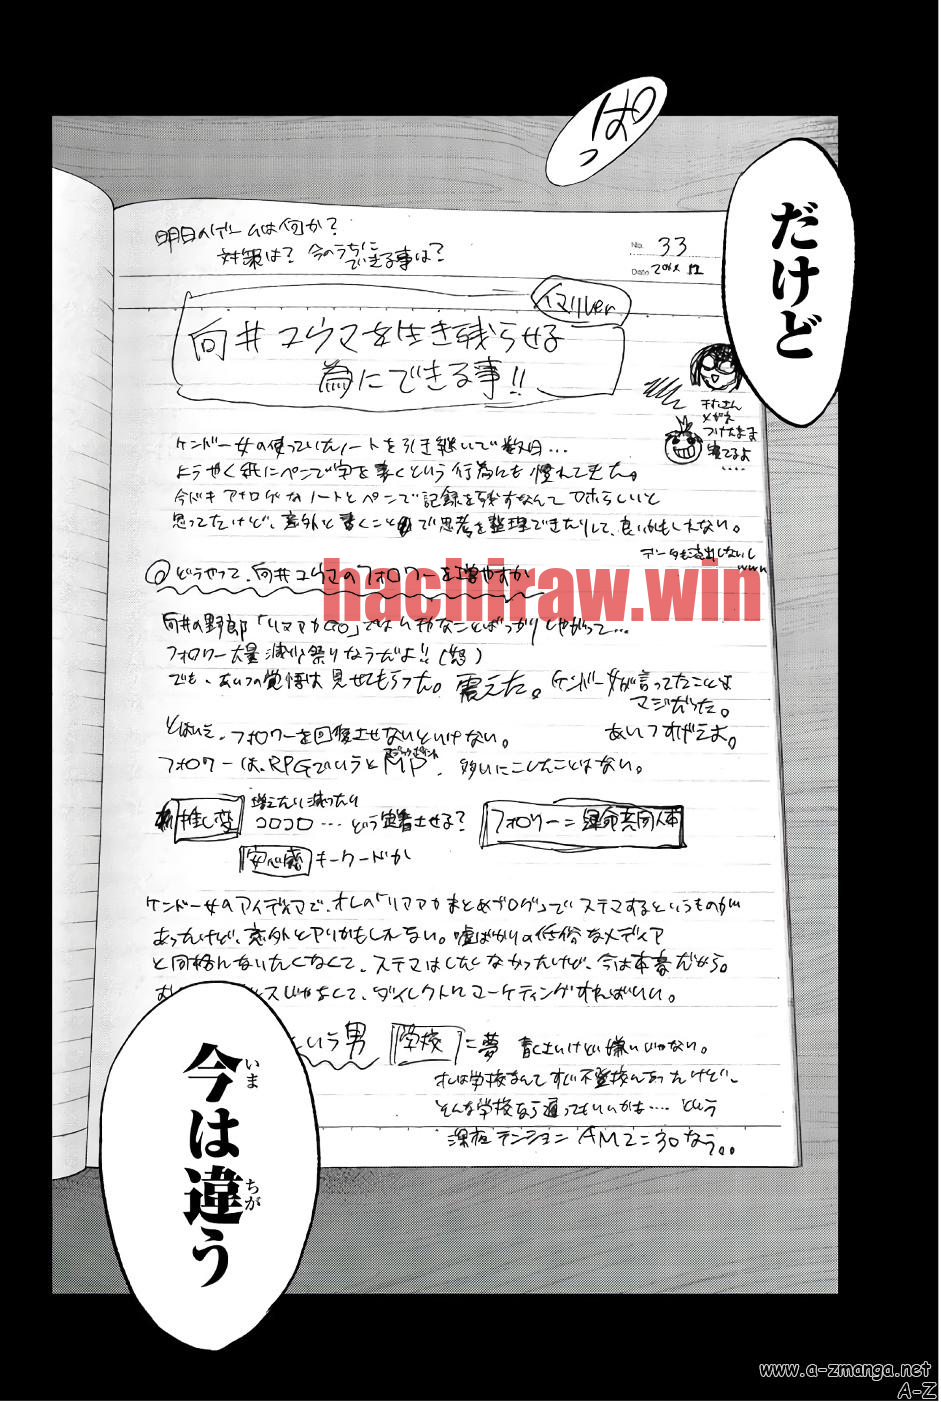 ぱっ
だけど
明日のゲームは何か?
対策は? 今のうちに
できる事は?
No. 33
Date
イマリver
向井ユウマを生き残らせる
為にできる事!!
メガネ
つけたまま
寝てるよ
....
ケンドー女の使っていたノートを引き継いで数日…
ようやく紙にペンで字を書くという行為にも慣れてきた。
今どきアナログなノートとペンで記録を残すなんてアホらしいと
思ってたけど、意外と書くことで思考を整理できたりして、良いかもしれない。
データも流出しないし
www
◎どうやって、向井ユウマのフォロワーを増やすか
hachiraw.win
向井の野郎「リアアカGO」では
なことばっかりしやがって…
フォロワー大量減少祭りなうだよ!!(怒)
でも、あいつの覚悟は見せてもらった。震えた。ケンドー女が言ってたことは
マジだった。
あいつすげえよ。
とはいえ、フォロワーを回復させないといけない。
フォロワーは、RPGでいうとMP
マジックポイント
。多いにこしたことはない。
推し変
増えたり減ったり
コロコロ…どう定着させる?
フォロワー=運命共同体
安心感 キーワードか
ケンドー女のアイディアで、オレの「リアアカまとめブログ」でステマするというものが
あったけど、意外とアリかもしれない。嘘ばかりの低俗なメディア
と同格んなりたくなくて、ステマはしたくなかったけど、今は本番だから。
スじゃなくて、ダイレクトにマーケティングすればいい。
という男 学校に夢 青くさいけど嫌いじゃない。
オレは学校なんてすぐ不登校んなったけど、
そんな学校なら通ってもいいかも…という
深夜テンション AM2:30なう。。
今は違う
いま
ちが
www.a-zmanga.net
A-Z